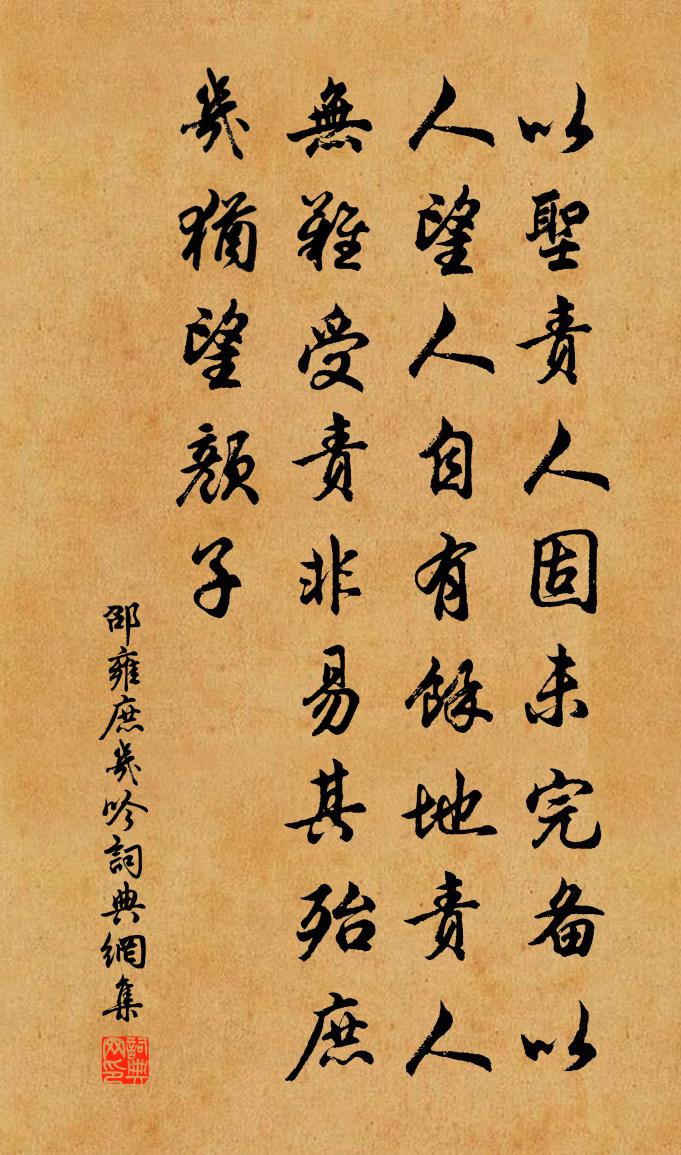 以聖責人固未完备以
人望人自有餘地責人
無難受責非易其殆庶
幾猶望顏子
邵雍庶幾吟詞典網集
詞典网印